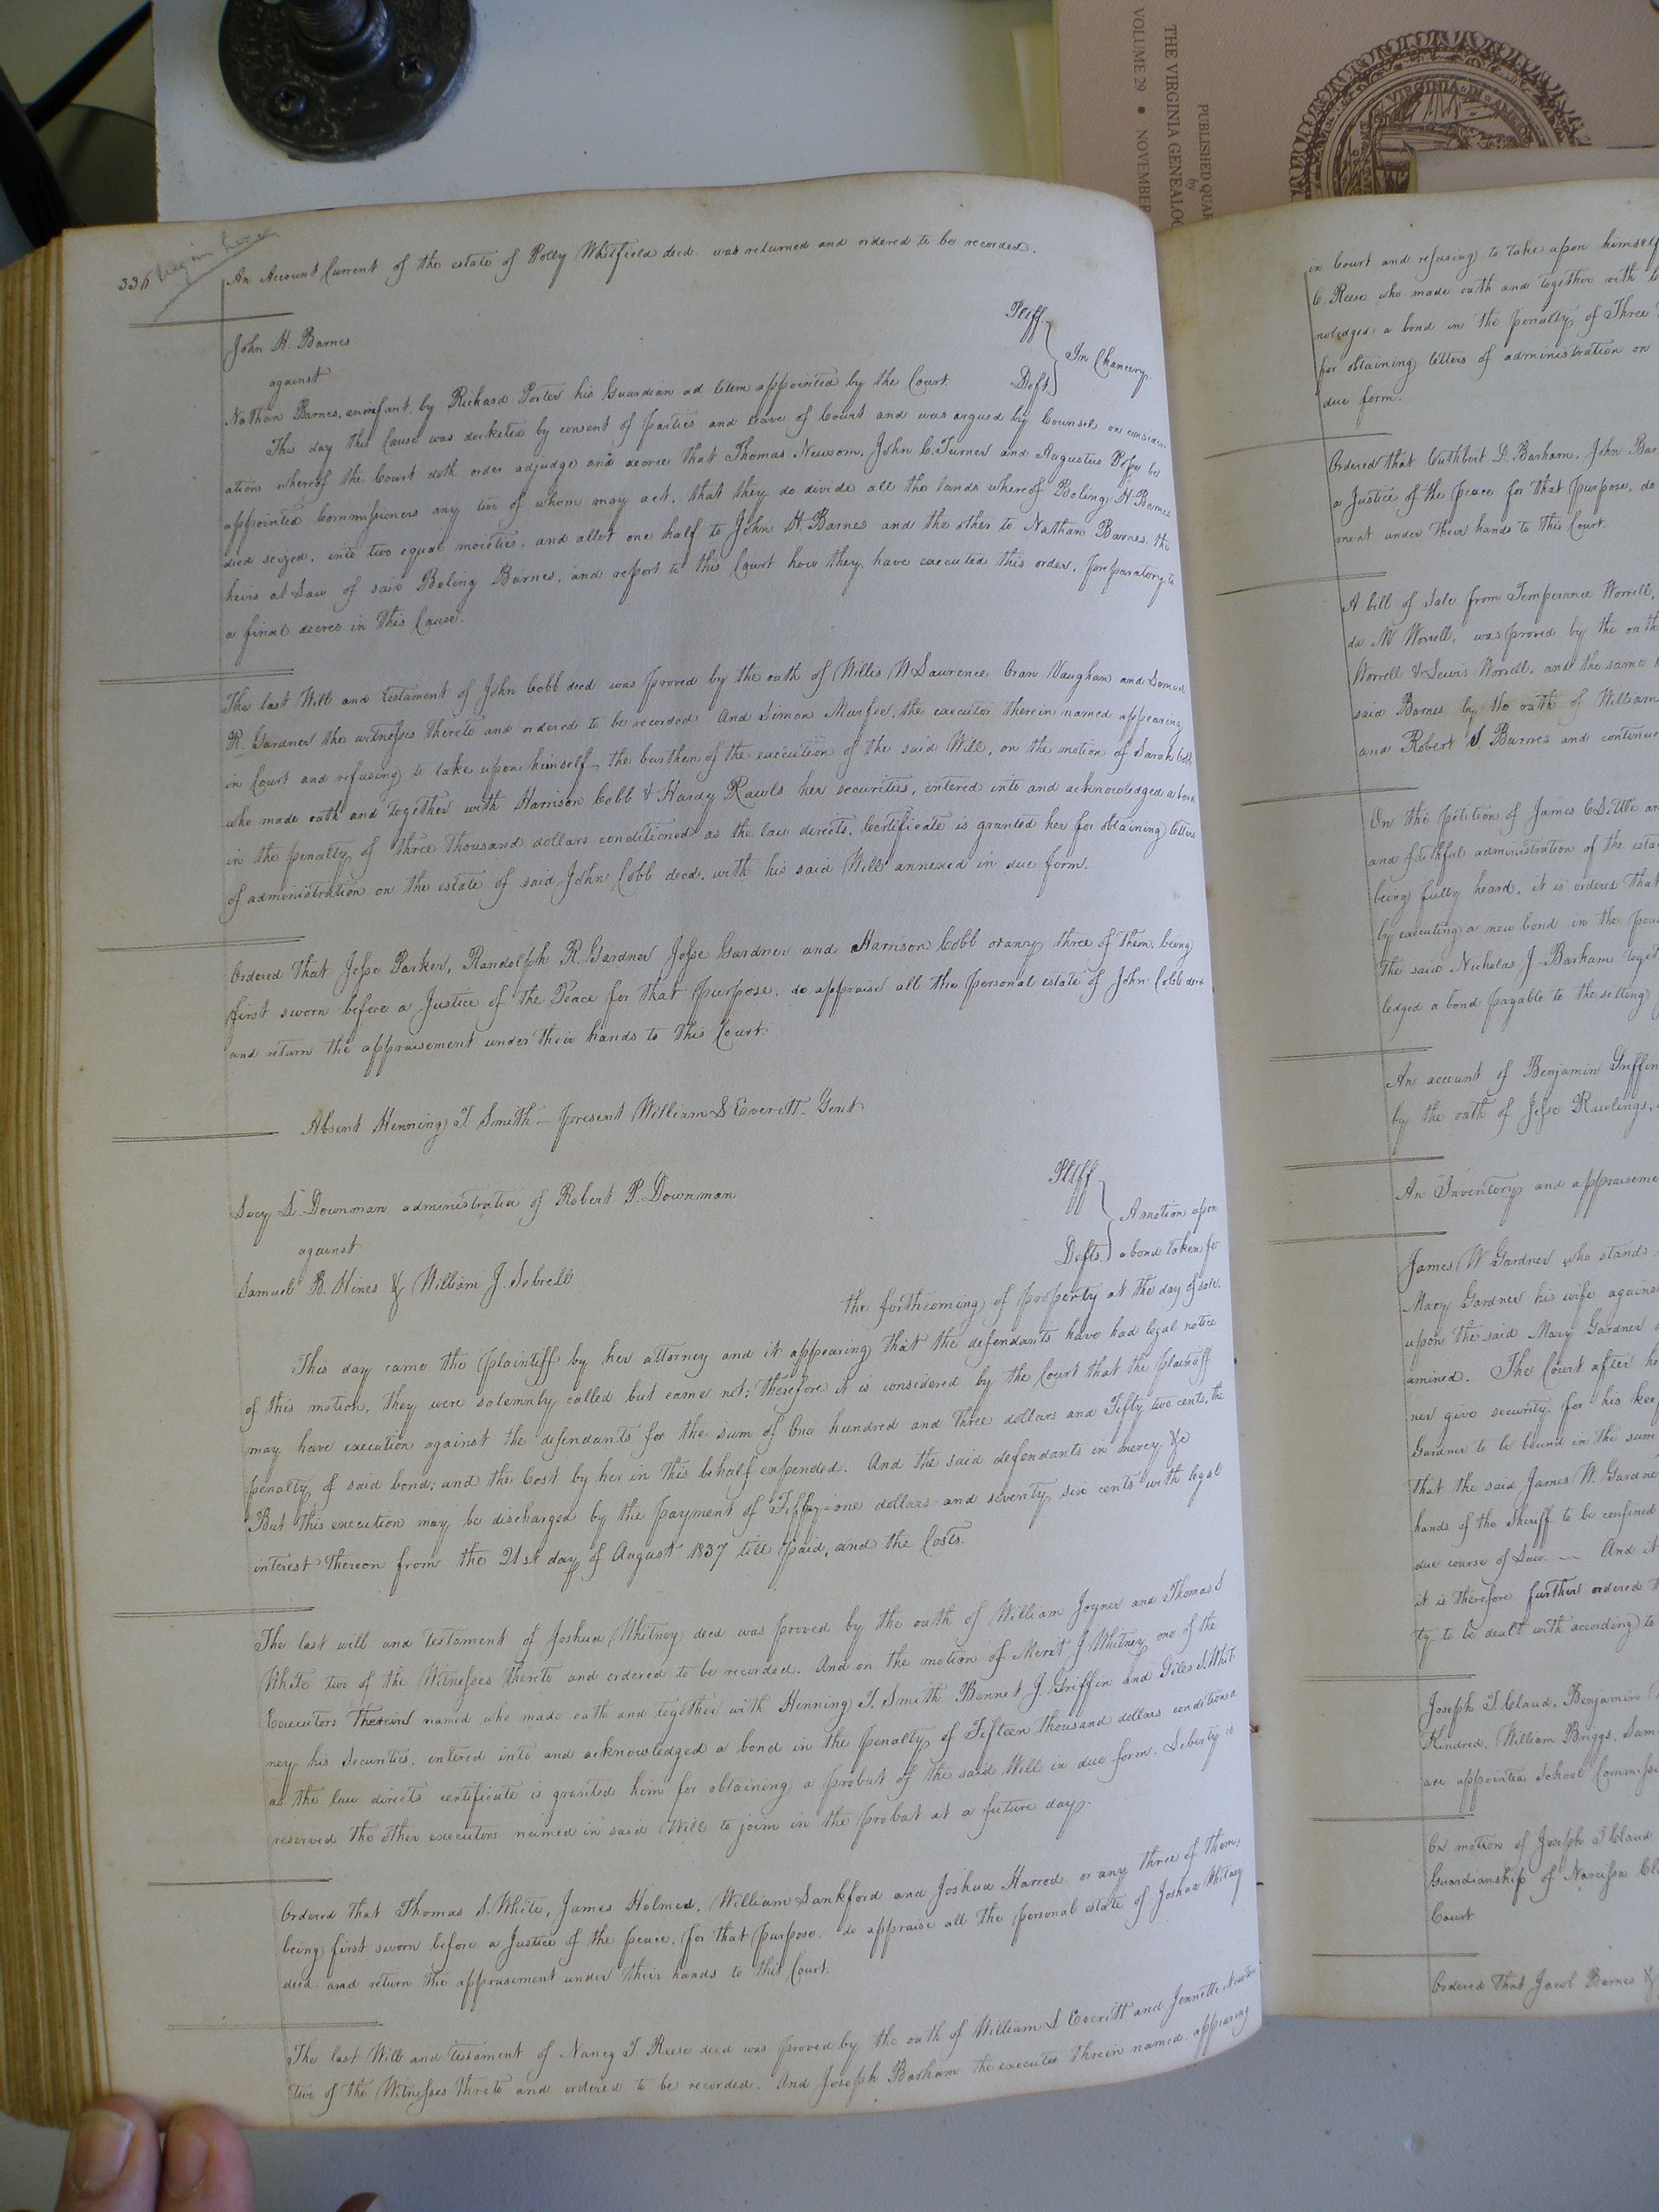 THE VIRGINIA GENEALOG
VOLUME 29 • NOVEMBER
PUBLISHED QUAR
by
VIRGINIA IN AME
336
Begin here
An Account Current of the estate of Polly Whitfield decd. was returned and ordered to be recorded.
John H. Barnes Pltff
against In Chancery.
Nathan Barnes, an infant, by Richard Porter his Guardian ad litem appointed by the Court. Deft.
This day this Cause was docketed by consent of parties and leave of Court and was argued by Counsel on consider-
ation whereof the Court doth order adjudge and decree that Thomas Newsom, John C. Turner and Augustus be
appointed Commissioners any two of whom may act, that they do divide all the lands whereof Boling H. Barnes
died seized, into two equal moieties, and allot one half to John H. Barnes and the other to Nathan Barnes, the
heirs at Law of said Boling Barnes, and report to this Court how they have executed this order, preparatory to
a final decree in this Cause.
The last Will and testament of John Cobb decd was proved by the oath of Willis W Lawrence Oran Vaughan and Samuel
R. Gardner the witnesses thereto and ordered to be recorded And Simon Murfee, the executor therein named appearing
in Court and refusing to take upon himself the burthen of the execution of the said Will, on the motion of Sarah Cobb
who made oath and together with Harrison Cobb & Hardy Rawls her securities, entered into and acknowledged a bond
in the penalty of three thousand dollars conditioned as the law directs, Certificate is granted her for obtaining letters
of administration on the estate of said John Cobb decd. with his said Will annexed in due form.
Ordered that Jesse Parker, Randolph R. Gardner Jesse Gardner and Harrison Cobb or any three of them being
first sworn before a Justice of the Peace for that purpose, do appraise all the personal estate of John Cobb decd
and return the appraisement under their hands to this Court.
Absent Henning T. Smith – present William S Everitt. Gent
Lucy L. Downman administratrix of Robert P. Downman Pltff
against A motion upon
Samuel B. Hines & William J. Sebrell Defts. a bond taken for
the forthcoming of property at the day of sale.
This day came the plaintiff by her attorney and it appearing that the defendants have had legal notice
of this motion, they were solemnly called but came not; therefore it is considered by the Court that the plaintiff
may have execution against the defendants for the sum of One hundred and three dollars and Fifty two cents, the
penalty of said bond; and the Cost by her in this behalf expended. And the said defendants in mercy &c
But this execution may be discharged by the payment of Fifty one dollars and seventy six cents with legal
interest thereon from the 21st day of August 1837 till paid, and the Costs.
The last will and testament of Joshua Whitney decd was proved by the oath of William Joyner and Thomas S
White two of the Witnesses thereto and ordered to be recorded. And on the motion of Merit J Whitney one of the
Executors therein named who made oath and together with Henning T. Smith Bennet J. Griffin and Giles S. Whit-
ney his Securities, entered into and acknowledged a bond in the penalty of Fifteen thousand dollars conditioned
as the law directs certificate is granted him for obtaining a probat of the said Will in due form. Liberty is
reserved the other executors named in said Will to join in the probat at a future day.
Ordered that Thomas S. White, James Holmes, William Lankford and Joshua Harrod or any three of them,
being first sworn before a Justice of the peace, for that purpose, do appraise all the personal estate of Joshua Whitney
decd. and return the appraisement under their hands to this Court.
The last Will and testament of Nancy T. Reese decd was proved by the oath of William S Everitt and Jennette
two of the Witnesses threto and ordered to be recorded. And Joseph Barham the executor threin named appearing
in Court and refusing to take upon himself
C. Reese who made oath and together with
noledged a bond in the penalty of Three
for obtaining letters of administration on
due form.
Ordered that Cuthbert D. Barham, John Bar
a Justice of the peace for that purpose, do
ment under their hands to this Court.
A bill of Sale from Temperance Worrell,
da M Worrell, was proved by the oath
Worrell & Lewis Worrell, and the same
said Barnes by the oath of William
and Robert S. Barnes and continue
On the petition of James C. Little an
and faithful administration of the esta
being fully heard, it is ordered that
by executing a new bond in the pen
The said Nicholas J. Barham toget
ledged a bond payable to the sitting
An account of Benjamin Griffin
by the oath of Jesse Rawlings,
An Inventory and appraiseme
James W Gardner who stands
Mary Gardner his wife agains
upon the said Mary Gardner
amined. The Court after he
ner give security for his kee
Gardner to be bound in the sum
That the said James W. Gardne
hands of the Sheriff to be confined
due course of Law. — And it
it is therefore further ordered t
ty to be dealt with according to
Joseph T. Claud, Benjamin
Kindred, William Briggs, Sam
are appointed School Commissi
On motion of Joseph T Claud
Guardianship of Narcissa Cl
Court
Ordered that Jacob Barnes &